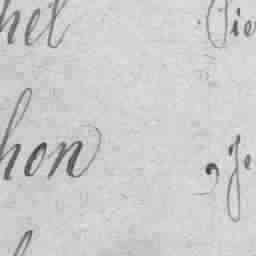 hel Pie
hon , Je